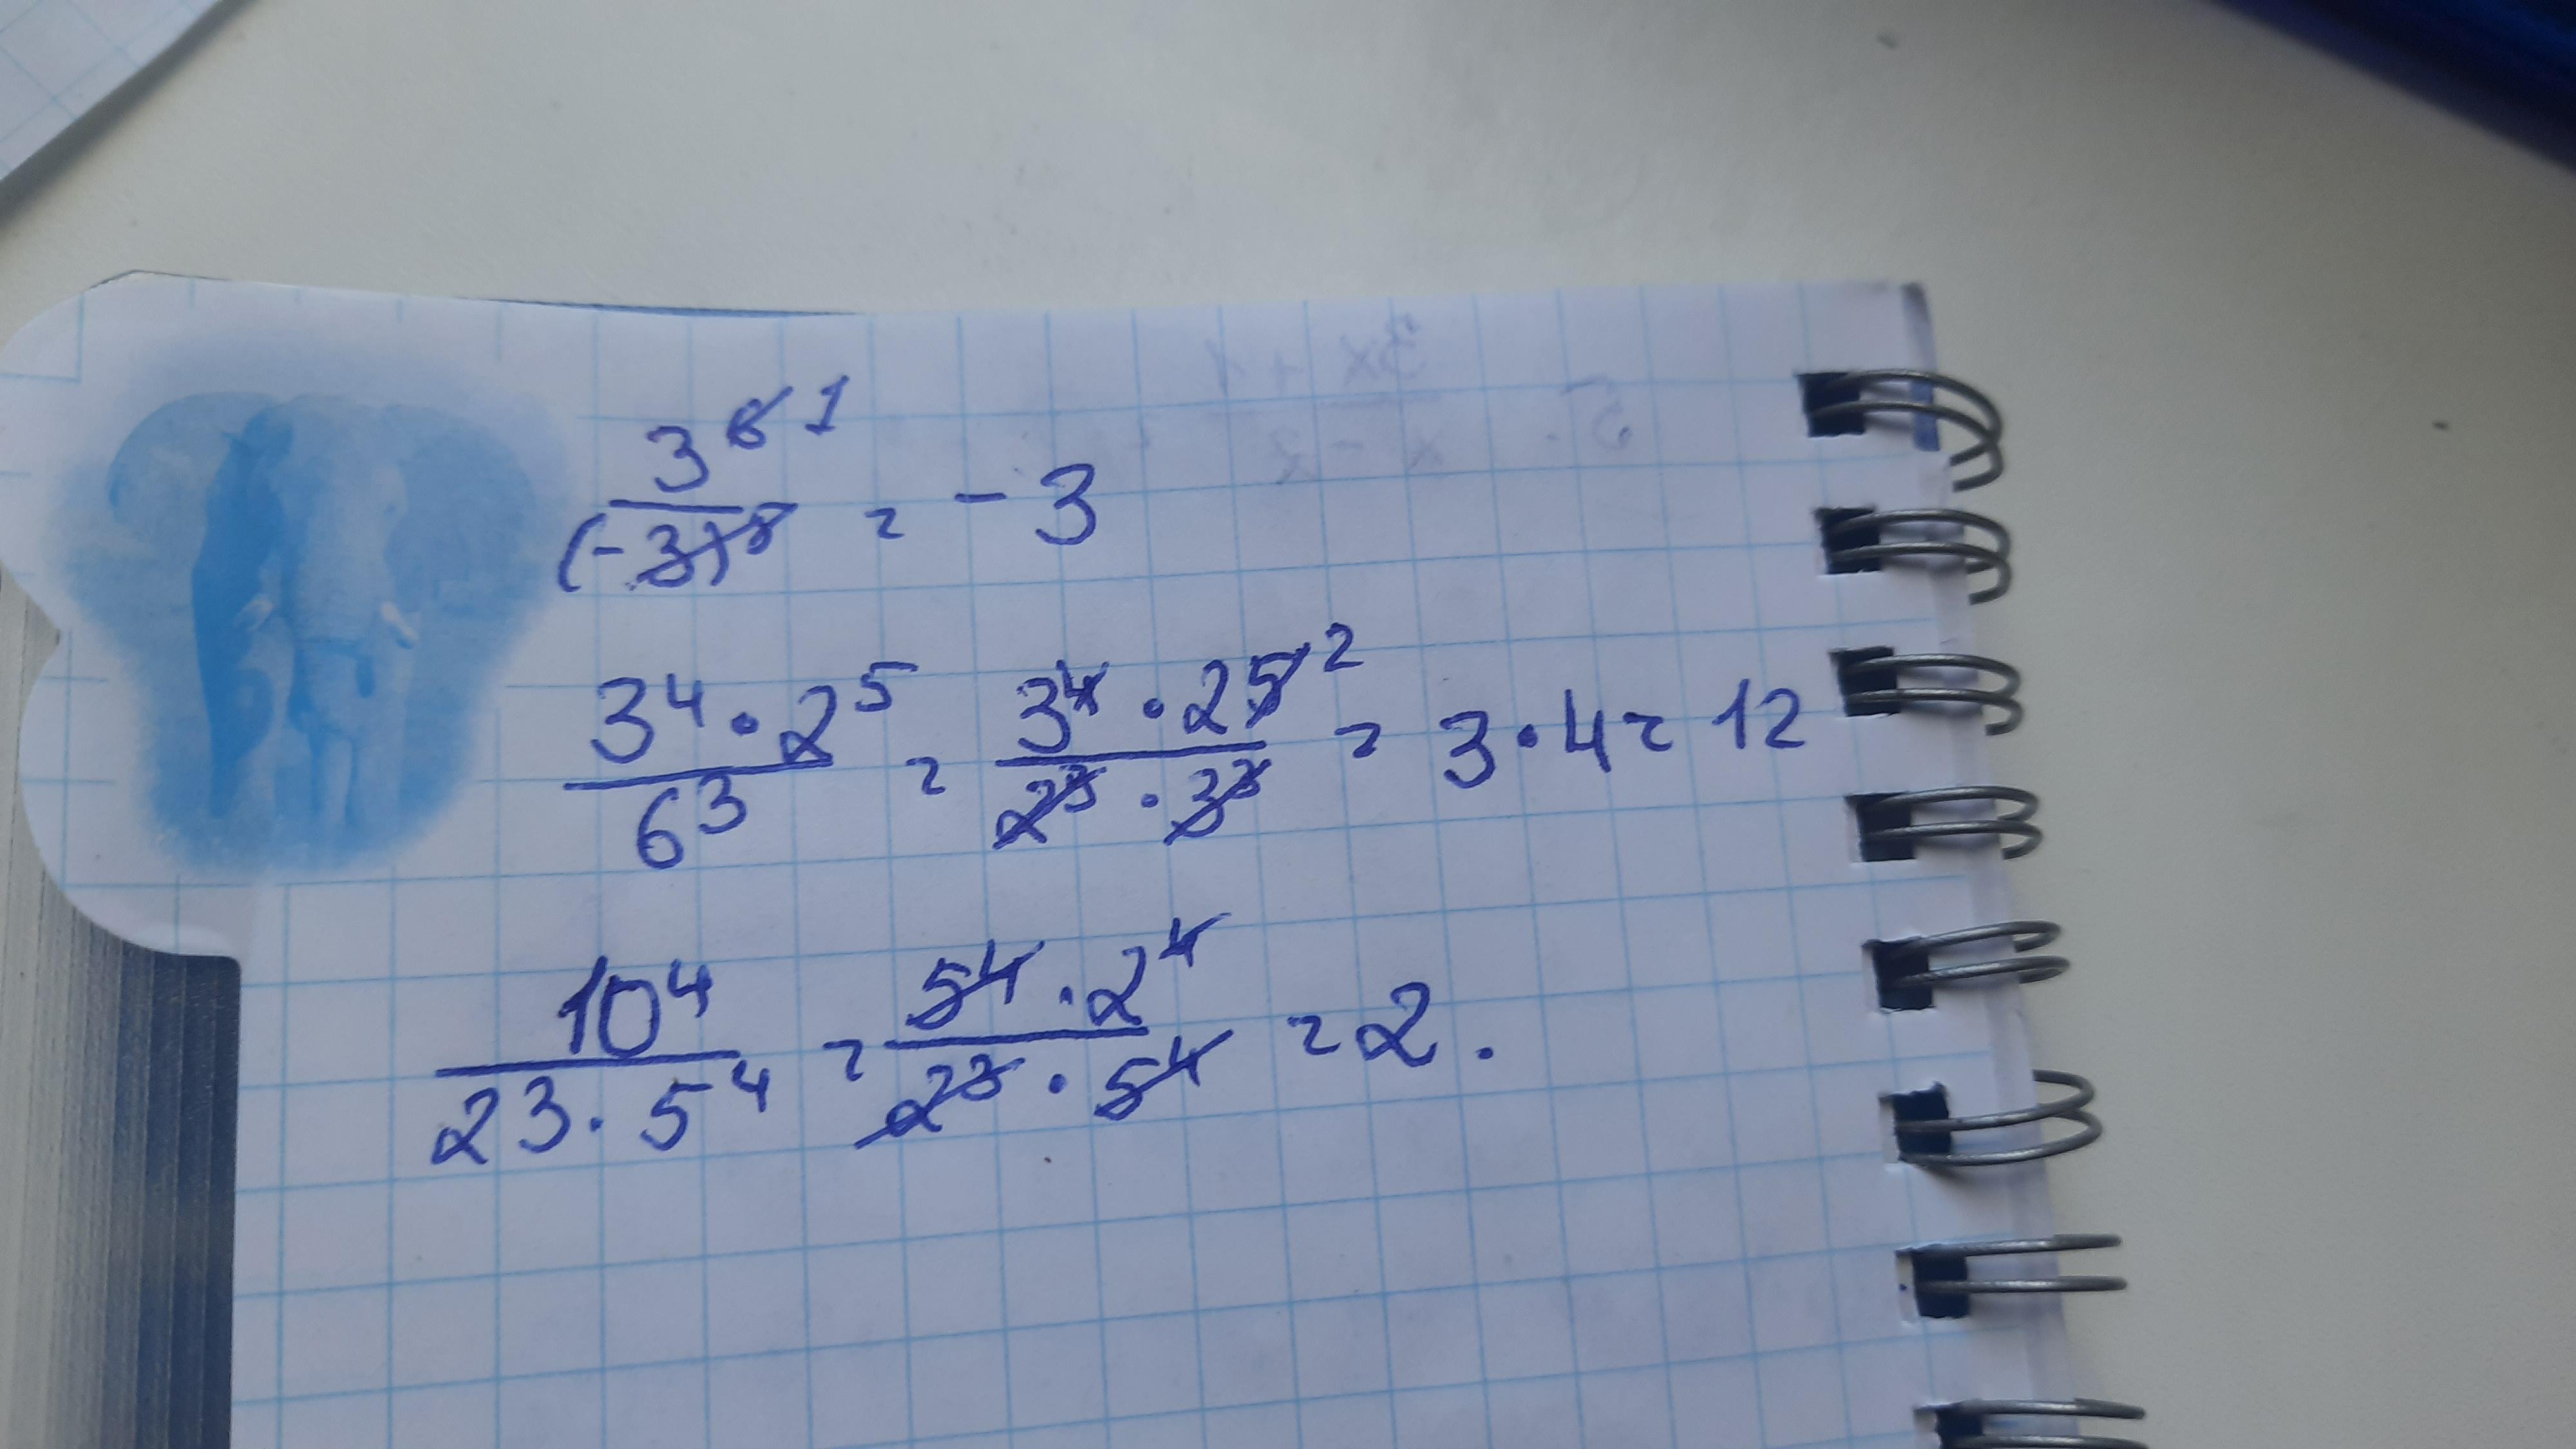 3⁶ ¹ / (-3)⁵ = -3
3⁴ · 2⁵ / 6³ = 3⁴ · 2⁵ ² / 2³ · 3³ = 3 · 4 = 12
10⁴ / 23 · 5⁴ = 5⁴ · 2⁴ / 2³ · 5⁴ = 2.